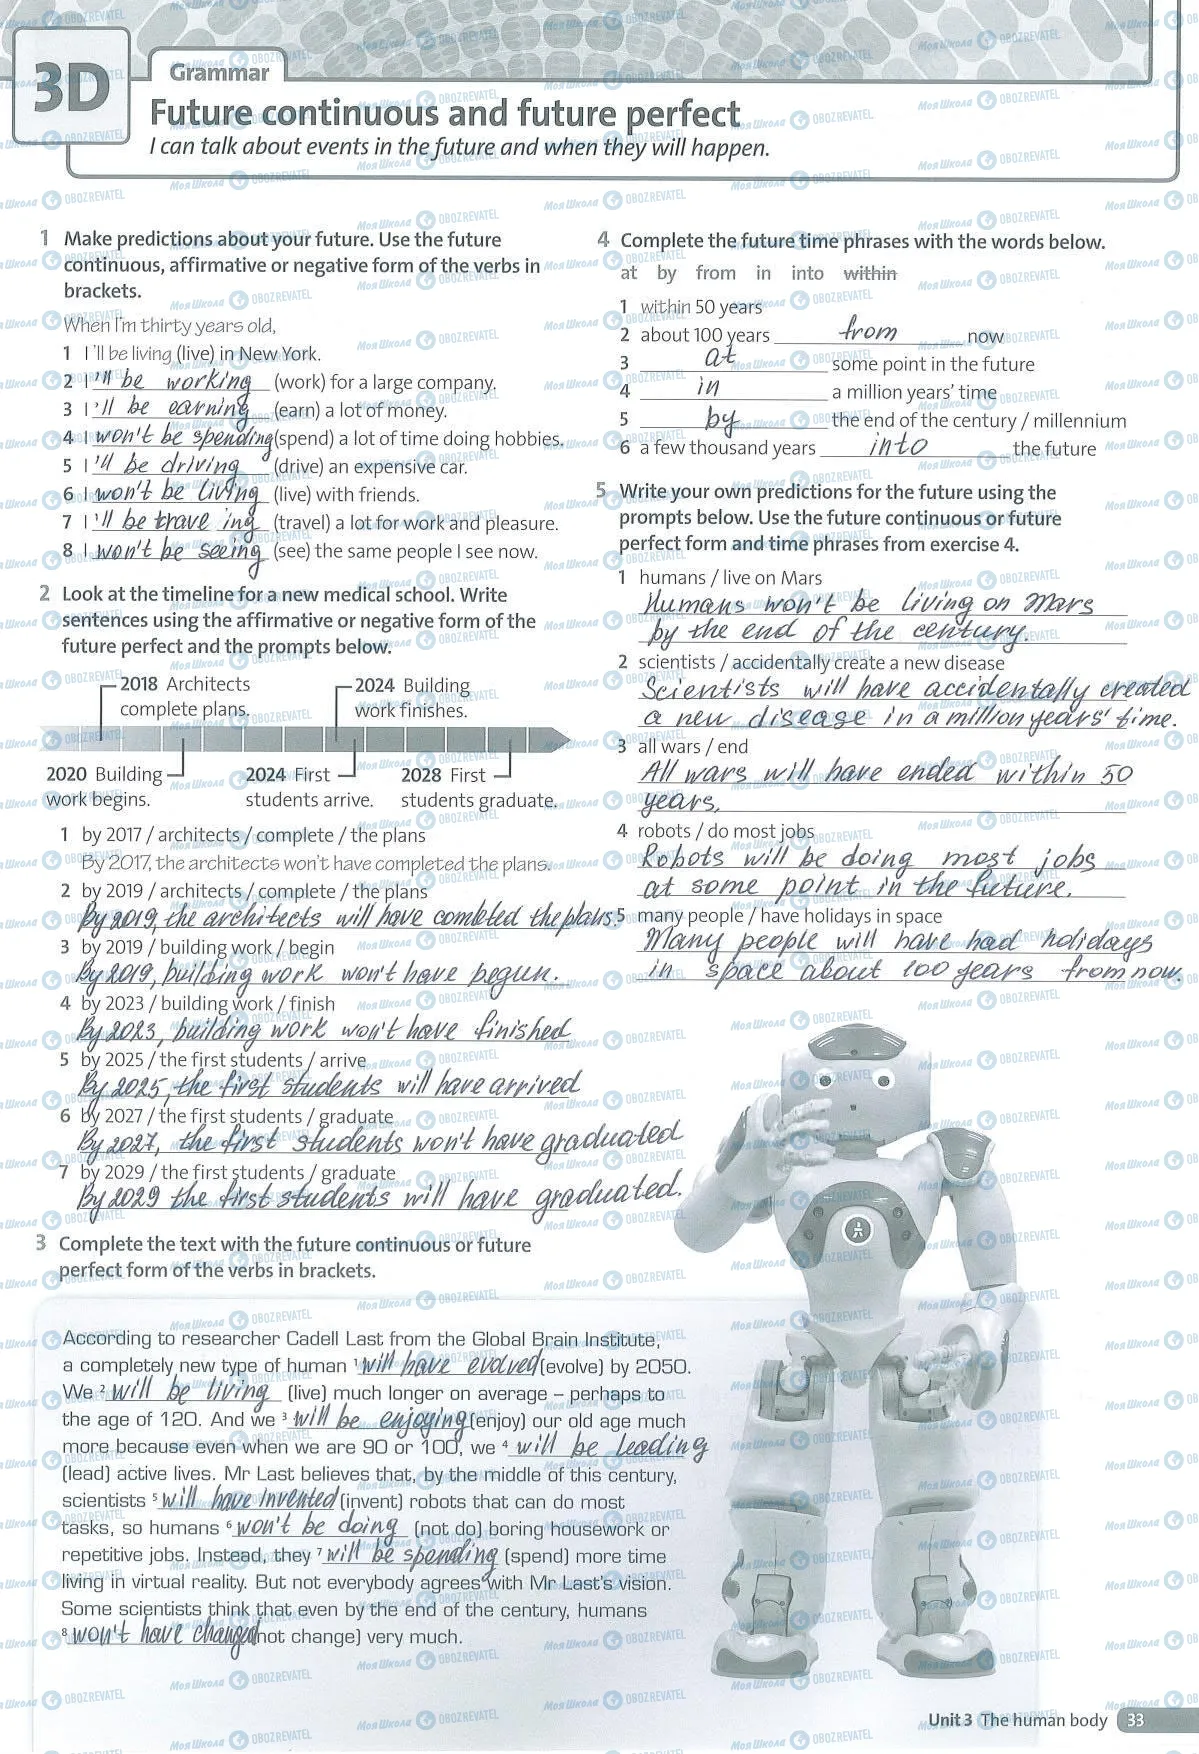 3D
Grammar
Future continuous and future perfect
I can talk about events in the future and when they will happen.
1 Make predictions about your future. Use the future
continuous, affirmative or negative form of the verbs in
brackets.
When I'm thirty years old,
1 I 'll be living (live) in New York.
2 I 'll be working (work) for a large company.
3 I 'll be earning (earn) a lot of money.
4 I won't be spending (spend) a lot of time doing hobbies.
5 I 'll be driving (drive) an expensive car.
6 I won't be living (live) with friends.
7 I 'll be trave ing (travel) a lot for work and pleasure.
8 I won't be seeing (see) the same people I see now.
2 Look at the timeline for a new medical school. Write
sentences using the affirmative or negative form of the
future perfect and the prompts below.
2018 Architects
complete plans.
2024 Building
work finishes.
2020 Building
work begins.
2024 First
students arrive.
2028 First
students graduate.
1 by 2017 / architects / complete / the plans
By 2017, the architects won't have completed the plans.
2 by 2019 / architects / complete / the plans
By 2019, the architects will have combleted the plans.
3 by 2019 / building work / begin
By 2019, building work won't have begun.
4 by 2023 / building work / finish
By 2023, building work won't have finished
5 by 2025 / the first students / arrive
By 2025, the first students will have arrived
6 by 2027 / the first students / graduate
By 2027, the first students won't have graduated
7 by 2029 / the first students / graduate
By 2029 the first students will have graduated.
3 Complete the text with the future continuous or future
perfect form of the verbs in brackets.
According to researcher Cadell Last from the Global Brain Institute,
a completely new type of human 1 will have evolved (evolve) by 2050.
We 2 will be living (live) much longer on average – perhaps to
the age of 120. And we 3 will be enjoying (enjoy) our old age much
more because even when we are 90 or 100, we 4 will be leading
(lead) active lives. Mr Last believes that, by the middle of this century,
scientists 5 will have invented (invent) robots that can do most
tasks, so humans 6 won't be doing (not do) boring housework or
repetitive jobs. Instead, they 7 will be spending (spend) more time
living in virtual reality. But not everybody agrees with Mr Last's vision.
Some scientists think that even by the end of the century, humans
8 won't have changed (not change) very much.
4 Complete the future time phrases with the words below.
at by from in into within
1 within 50 years
2 about 100 years from now
3 at some point in the future
4 in a million years' time
5 by the end of the century / millennium
6 a few thousand years into the future
5 Write your own predictions for the future using the
prompts below. Use the future continuous or future
perfect form and time phrases from exercise 4.
1 humans / live on Mars
Humans won't be living on Mars
by the end of the century.
2 scientists / accidentally create a new disease
Scientists will have accidentally created
a new disease in a million years' time.
3 all wars / end
All wars will have ended within 50
years.
4 robots / do most jobs
Robots will be doing most jobs
at some point in the future.
5 many people / have holidays in space
Many people will have had holidays
in space about 100 years from now.
Unit 3 The human body 33
Моя Школа OBOZREVATEL